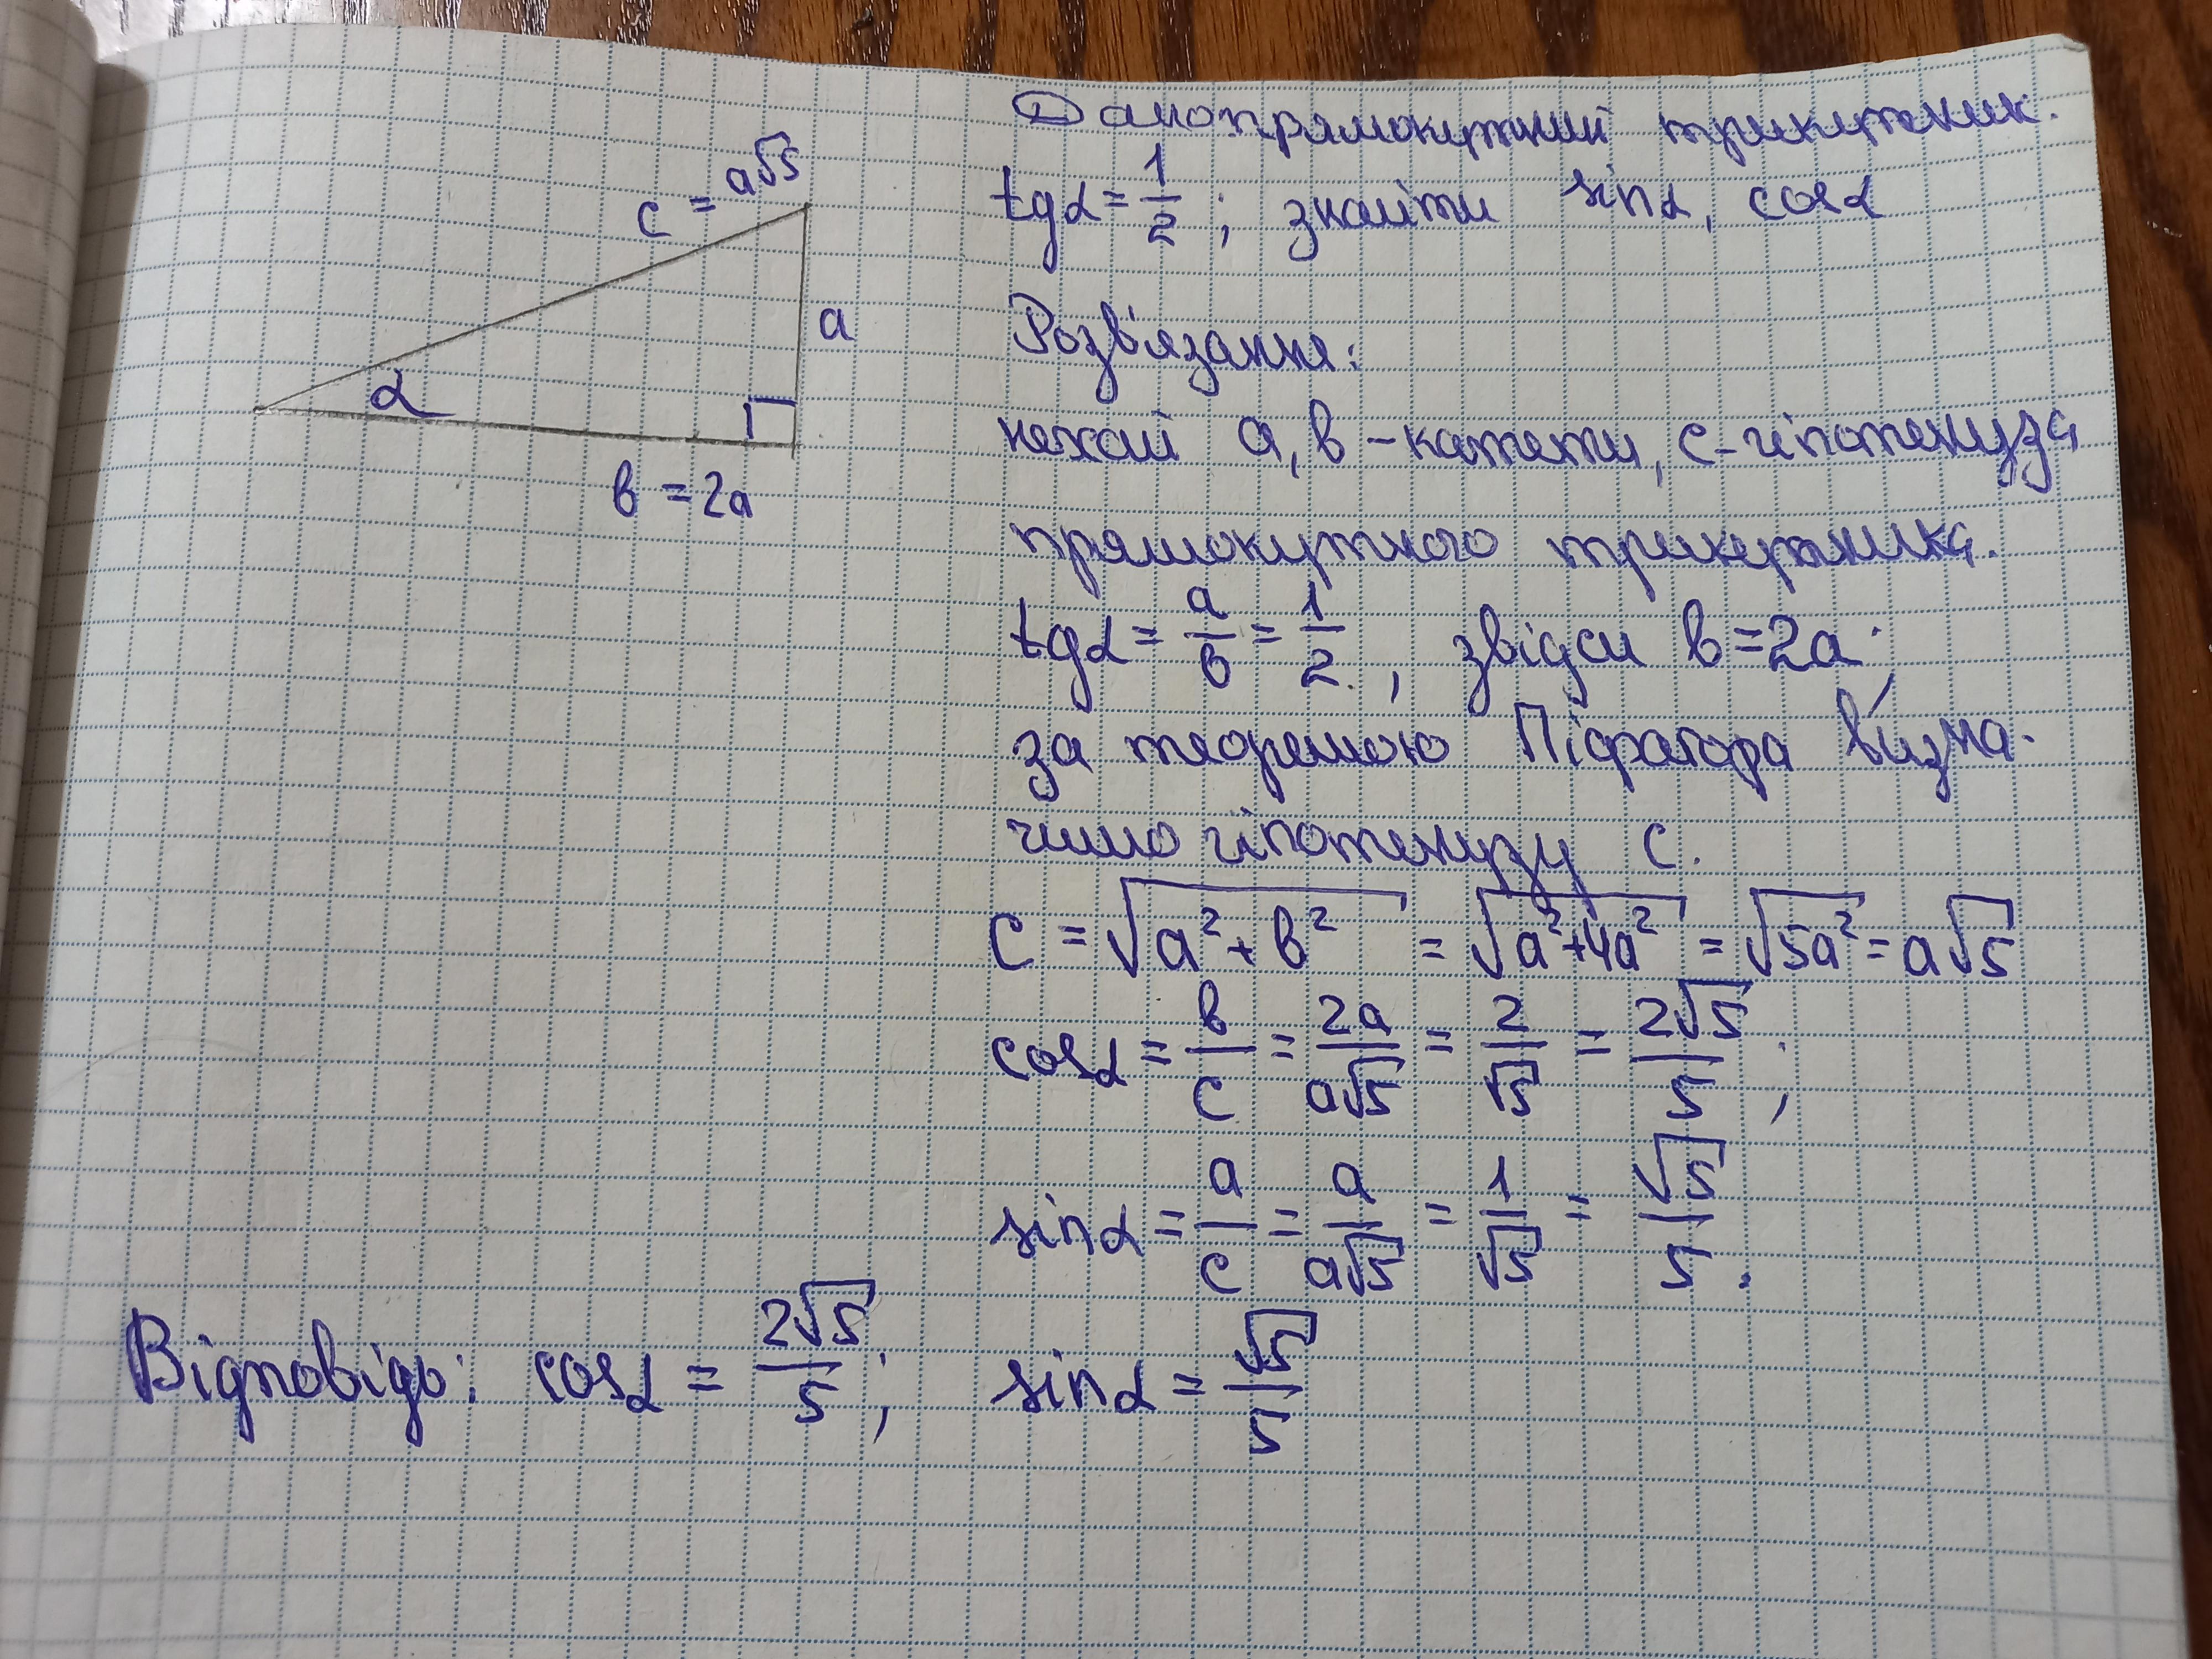 c = a√5
a
α
b = 2a
Дано: прямокутний трикутник.
tgα = 1/2 ; знайти sinα, cosα
Розв'язання:
нехай a, b – катети, c – гіпотенуза
прямокутного трикутника.
tgα = a/b = 1/2 , звідси b = 2a ;
за теоремою Піфагора визна-
чимо гіпотенузу c.
c = √(a² + b²) = √(a² + 4a²) = √(5a²) = a√5
cosα = b/c = 2a/(a√5) = 2/√5 = 2√5/5 ;
sinα = a/c = a/(a√5) = 1/√5 = √5/5 .
Відповідь: cosα = 2√5/5 ; sinα = √5/5